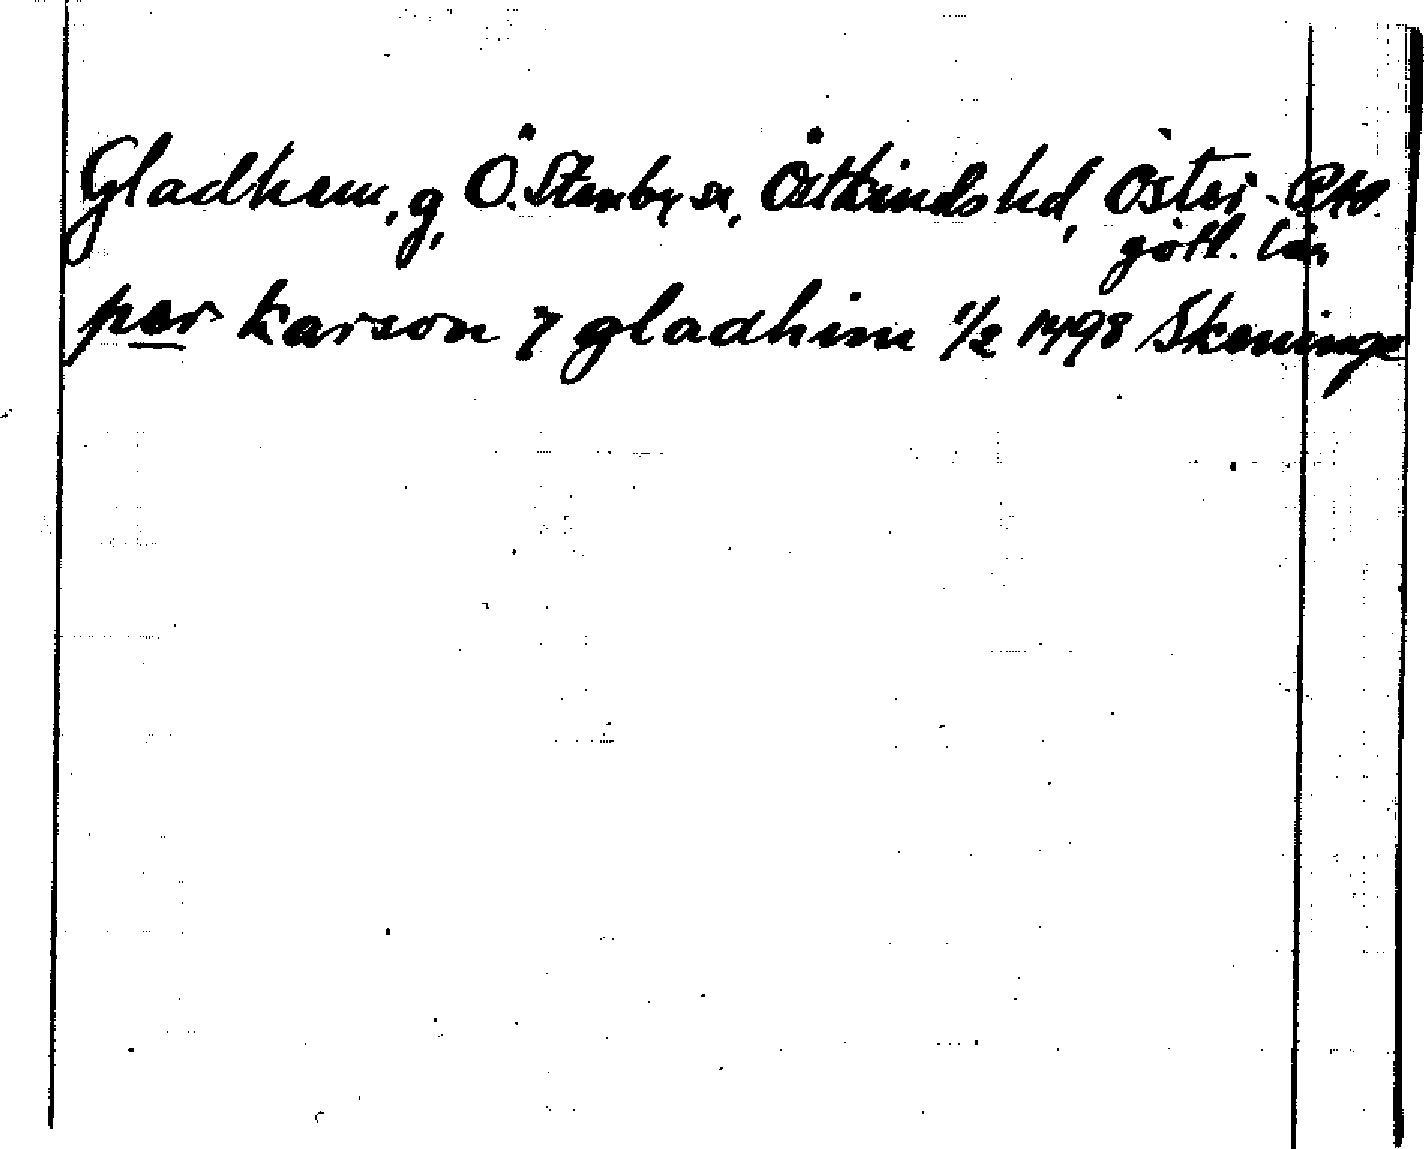 Gladhem, g, Ö. Stenby sn, Östkinds hd, Öster-
götl. län
per karson j gladhim 1/2 1498 Skeninge